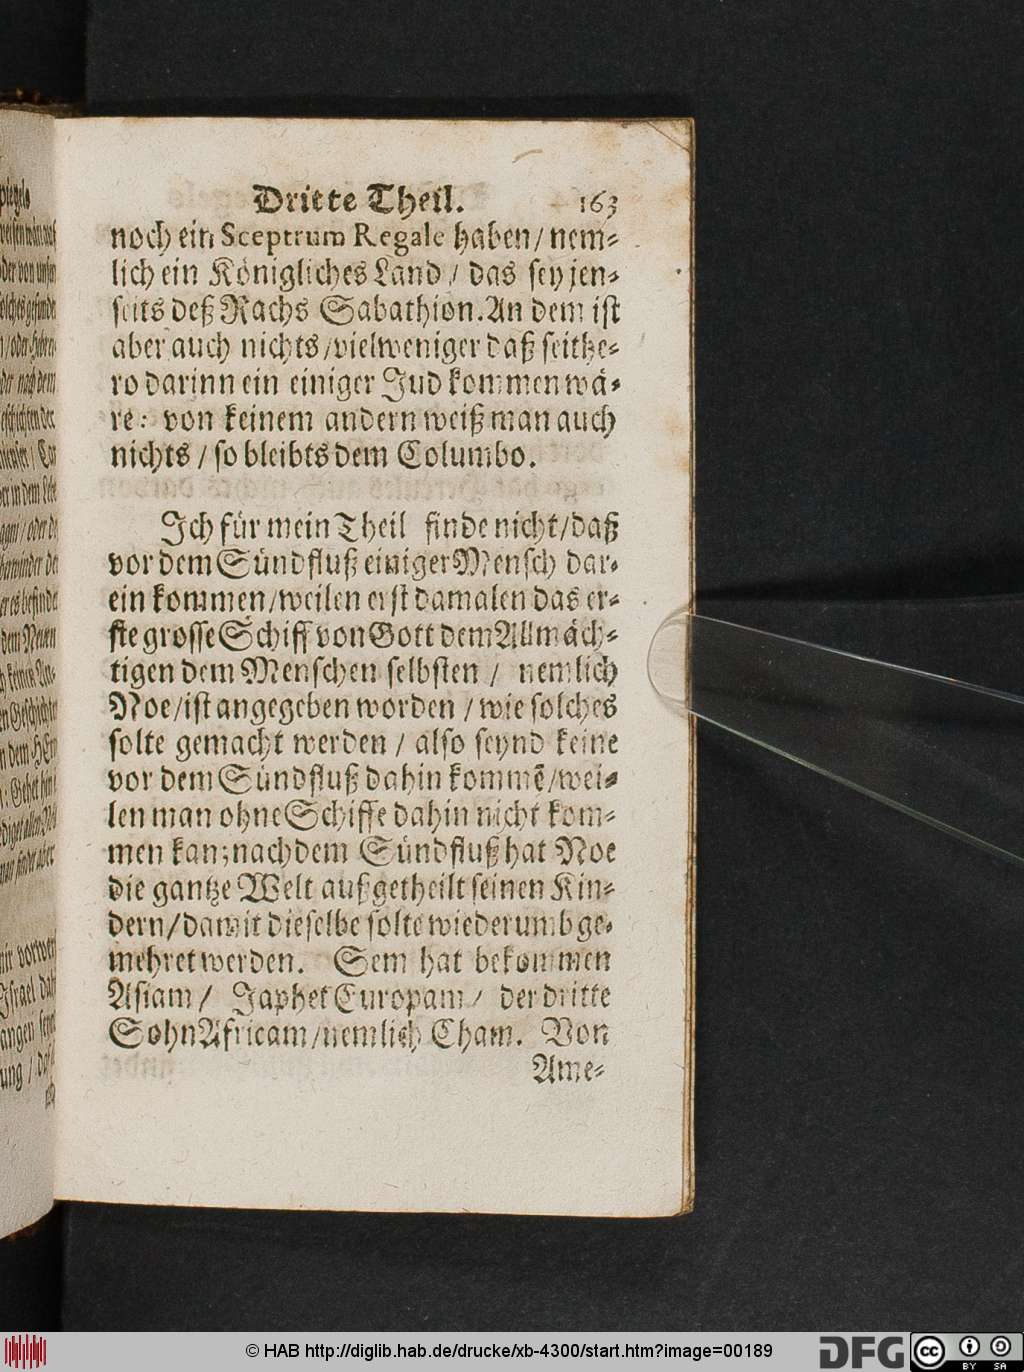 Dritte Theil. 163
noch ein Sceptrum Regale haben / nem⸗
lich ein Königliches Land / das sey jen⸗
seits deß Bachs Sabathion. An dem ist
aber auch nichts / vielweniger daß seithe⸗
ro darinn ein einiger Jud kommen wä⸗
re: von keinem andern weiß man auch
nichts / so bleibts dem Columbo.
Ich für mein Theil finde nicht / daß
vor dem Sündfluß einiger Mensch dar⸗
ein kommen / weilen erst damalen das er⸗
ste grosse Schiff von Gott dem Allmäch⸗
tigen dem Menschen selbsten / nemlich
Noe / ist angegeben worden / wie solches
solte gemacht werden / also seynd keine
vor dem Sündfluß dahin kommẽ / wei⸗
len man ohne Schiffe dahin nicht kom⸗
men kan; nach dem Sündfluß hat Noe
die gantze Welt außgetheilt seinen Kin⸗
dern / damit dieselbe solte wiederumb ge⸗
mehret werden. Sem hat bekommen
Asiam / Japhet Europam / der dritte
Sohn Africam / nemlich Cham. Von
Ame⸗
© HAB http://diglib.hab.de/drucke/xb-4300/start.htm?image=00189
DFG
cc BY SA